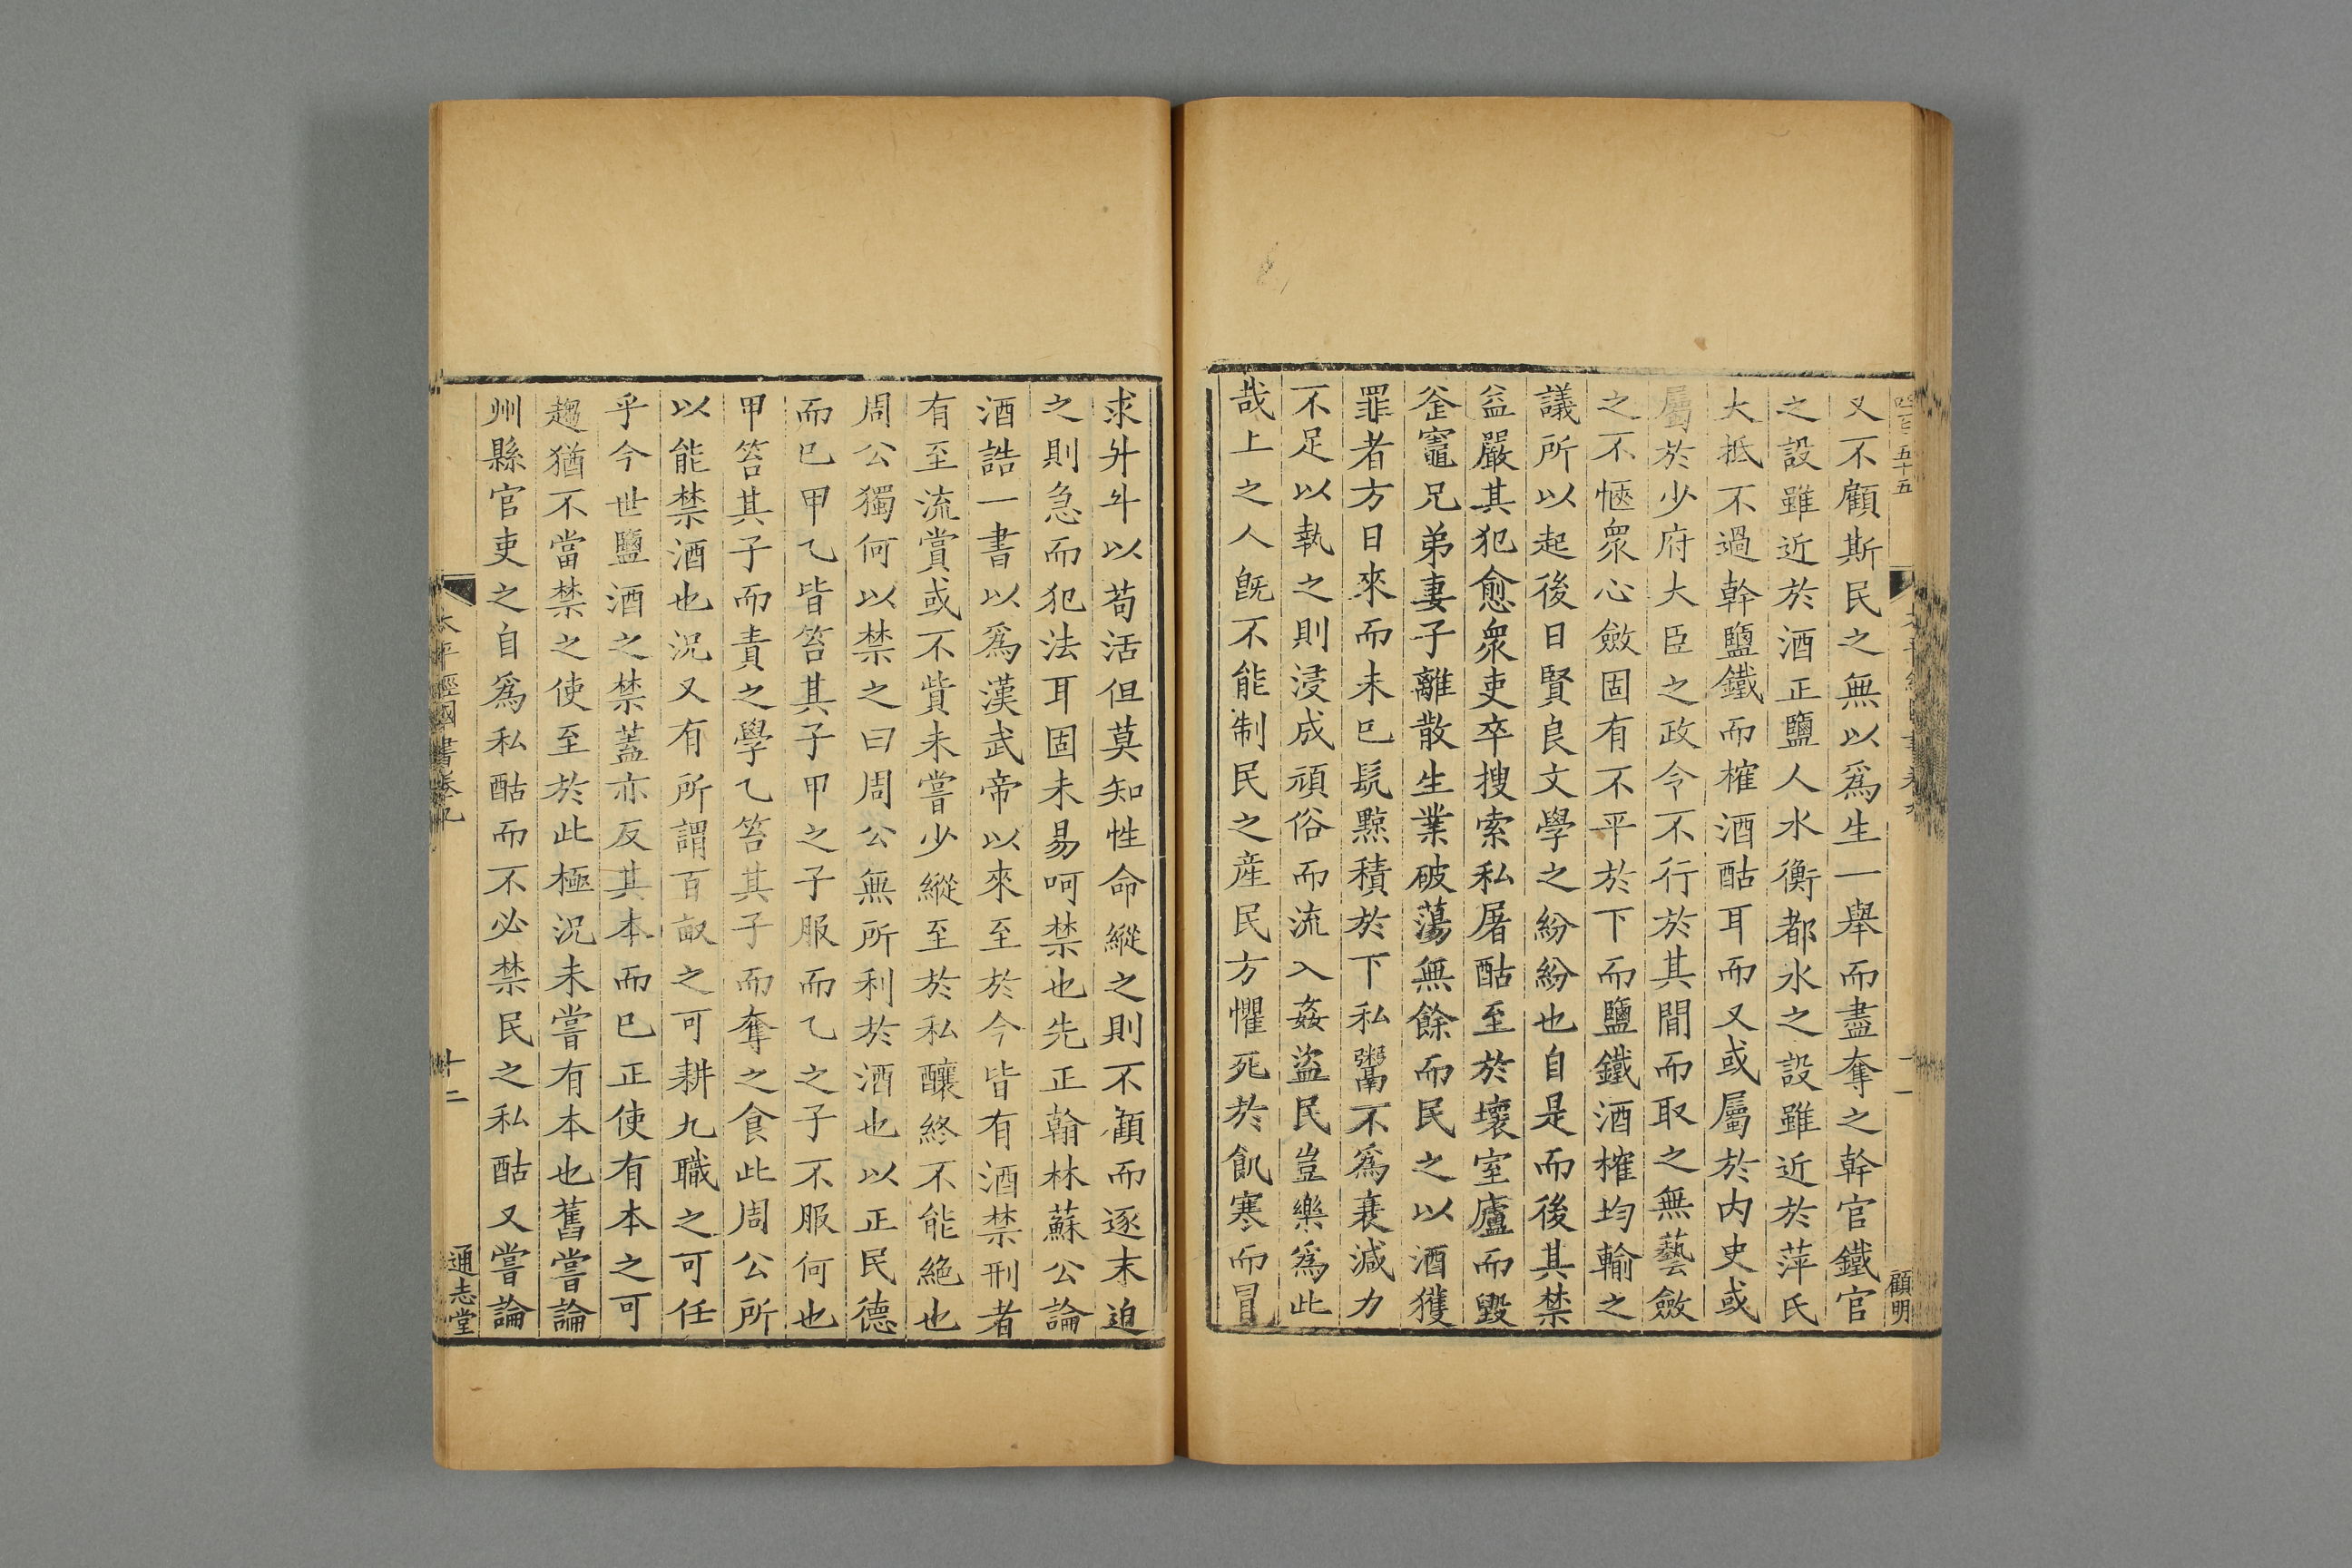 四百五十五
又不顧斯民之無以爲生一舉而盡奪之幹官鐵官
之設雖近於酒正鹽人水衡都水之設雖近於萍氏
大抵不過幹鹽鐵而榷酒酤耳而又或屬於内史或
屬於少府大臣之政令不行於其間而取之無藝斂
之不愜衆心斂固有不平於下而鹽鐵酒榷均輸之
議所以起後日賢良文學之紛紛也自是而後其禁
益嚴其犯愈衆吏卒搜索私屠酤至於壞室廬而毀
釜竈兄弟妻子離散生業破蕩無餘而民之以酒獲
罪者方日來而未已髡黥積於下私鬻不爲衰減力
不足以執之則浸成頑俗而流入姦盜民豈樂爲此
哉上之人旣不能制民之産民方懼死於飢寒而冒
顧明
求升斗以苟活但莫知性命縱之則不顧而逐末迫
之則急而犯法耳固未易呵禁也先正翰林蘇公論
酒誥一書以爲漢武帝以來至於今皆有酒禁刑者
有至流賞或不貲未嘗少縱至於私釀終不能絶也
周公獨何以禁之曰周公無所利於酒也以正民德
而已甲乙皆笞其子甲之子服而乙之子不服何也
甲笞其子而責之學乙笞其子而奪之食此周公所
以能禁酒也況又有所謂百畝之可耕九職之可任
乎今世鹽酒之禁蓋亦反其本而已正使有本之可
趨猶不當禁之使至於此極況未嘗有本也舊嘗論
州縣官吏之自爲私酤而不必禁民之私酤又嘗論
太平經國書卷九
十二
通志堂